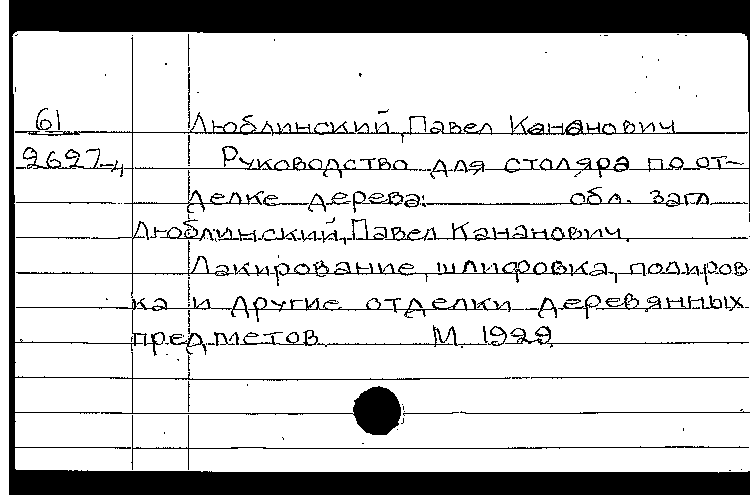 61 Люблинский, Павел Кананович
2627 Руководство для столяра по от-
делке дерева: обл. загл
Люблинский, Павел Кананович.
Лакирование, шлифовка, полиров
ка и другие отделки деревянных
предметов М. 1929